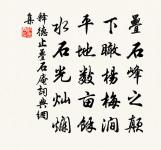 叠石峰之颠
下瞰杨梅涧
平地数亩馀
水石光灿烂
释德止叠石庵词典网
集